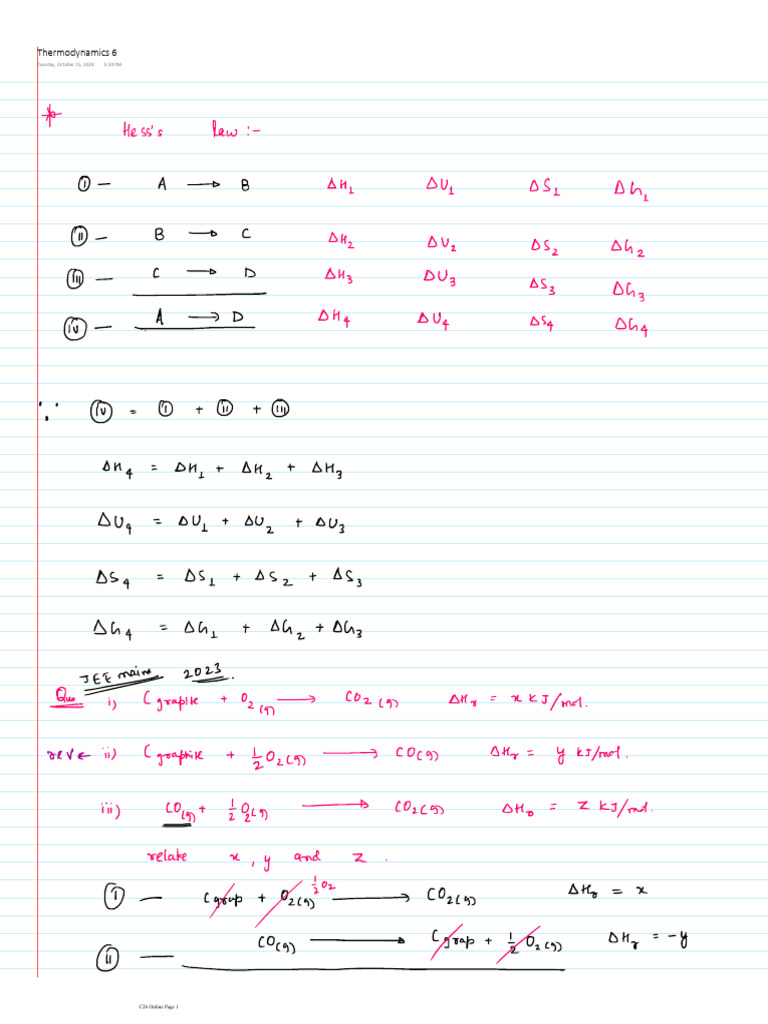 Thermodynamics 6
Tuesday, October 15, 2024 5:33 PM
* Hess's Law :-
(I) — A → B ΔH₁ ΔU₁ ΔS₁ ΔG₁
(II) — B → C ΔH₂ ΔU₂ ΔS₂ ΔG₂
(III) — C → D ΔH₃ ΔU₃ ΔS₃ ΔG₃
(IV) — A → D ΔH₄ ΔU₄ ΔS₄ ΔG₄
∵ (IV) = (I) + (II) + (III)
ΔH₄ = ΔH₁ + ΔH₂ + ΔH₃
ΔU₄ = ΔU₁ + ΔU₂ + ΔU₃
ΔS₄ = ΔS₁ + ΔS₂ + ΔS₃
ΔG₄ = ΔG₁ + ΔG₂ + ΔG₃
JEE mains 2023.
Que i) C graphite + O₂(g) → CO₂(g) ΔHr = x kJ/mol.
rev ← ii) C graphite + 1/2 O₂(g) → CO(g) ΔHr = y kJ/mol.
iii) CO(g) + 1/2 O₂(g) → CO₂(g) ΔHr = z kJ/mol.
relate x, y and z.
(I) — C grap + O₂(g) 1/2 O₂ → CO₂(g) ΔHr = x
(II) — CO(g) → C grap + 1/2 O₂(g) ΔHr = -y
C26 Online Page 1